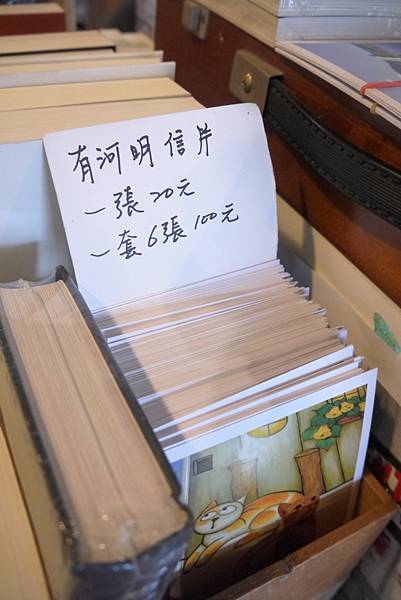 有河明信片
一張20元
一套6張100元